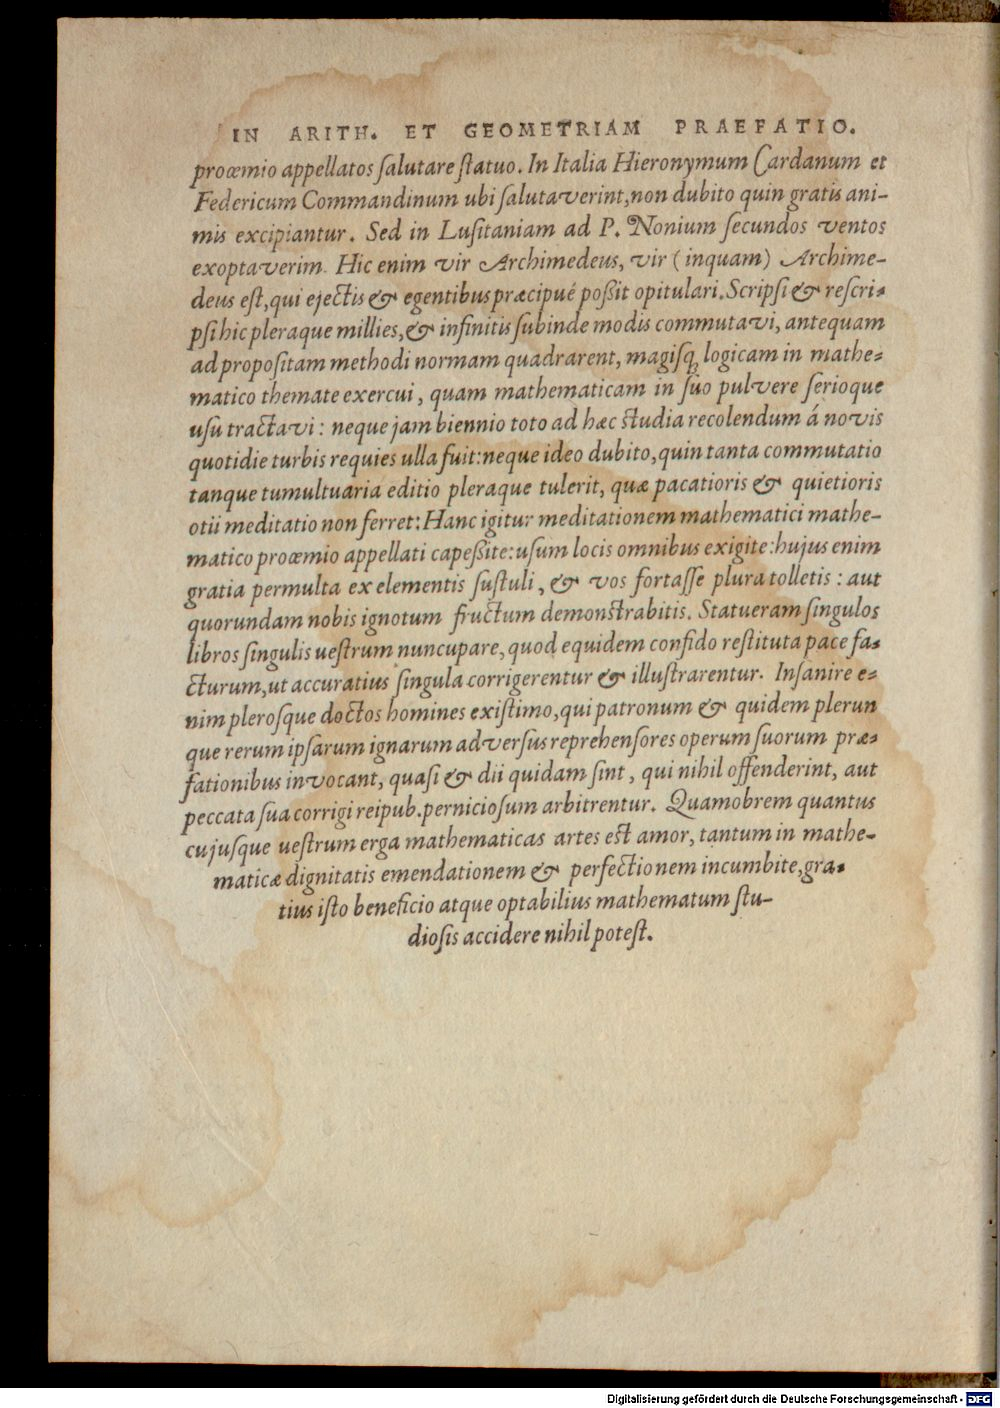 IN ARITH. ET GEOMETRIAM PRAEFATIO.
proœmio appellatos salutare statuo. In Italia Hieronymum Cardanum et
Federicum Commandinum ubi salutaverint, non dubito quin gratis ani-
mis excipiantur. Sed in Lusitaniam ad P. Nonium secundos ventos
exoptaverim. Hic enim vir Archimedeus, vir (inquam) Archime-
deus est, qui ejectis & egentibus præcipué poßit opitulari. Scripsi & rescri-
psi hic pleraque millies, & infinitis subinde modis commutavi, antequam
ad propositam methodi normam quadrarent, magisq; logicam in mathe-
matico themate exercui, quam mathematicam in suo pulvere serioque
usu tractavi: neque jam biennio toto ad hæc studia recolendum á novis
quotidie turbis requies ulla fuit: neque ideo dubito, quin tanta commutatio
tanque tumultuaria editio pleraque tulerit, quæ pacatioris & quietioris
otii meditatio non ferret: Hanc igitur meditationem mathematici mathe-
matico proœmio appellati capeßite: usum locis omnibus exigite: hujus enim
gratia permulta ex elementis sustuli, & vos fortasse plura tolletis: aut
quorundam nobis ignotum fructum demonstrabitis. Statueram singulos
libros singulis uestrum nuncupare, quod equidem confido restituta pace fa-
cturum, ut accuratius singula corrigerentur & illustrarentur. Insanire e-
nim plerosque doctos homines existimo, qui patronum & quidem plerun
que rerum ipsarum ignarum adversus reprehensores operum suorum præ-
fationibus invocant, quasi & dii quidam sint, qui nihil offenderint, aut
peccata sua corrigi reipub. perniciosum arbitrentur. Quamobrem quantus
cujusque uestrum erga mathematicas artes est amor, tantum in mathe-
maticæ dignitatis emendationem & perfectionem incumbite, gra-
tius isto beneficio atque optabilius mathematum stu-
diosis accidere nihil potest.
Digitalisierung gefördert durch die Deutsche Forschungsgemeinschaft - DFG